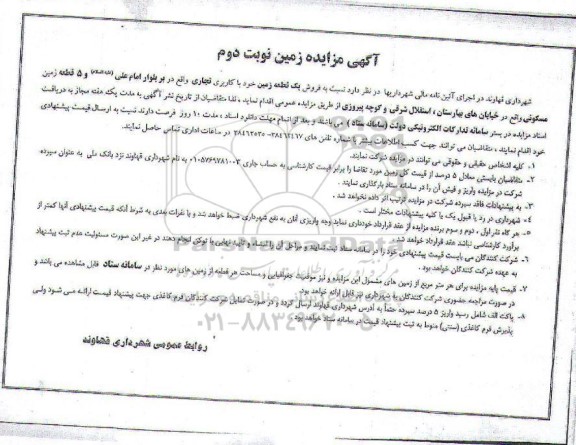 آگهی مزایده زمین نوبت دوم
شهرداری قهاوند در اجرای آئین نامه مالی شهرداریها در نظر دارد نسبت به فروش یک قطعه زمین خود با کاربری تجاری واقع در بر بلوار امام علی و ۵ قطعه زمین
مسکونی واقع در خیابان های بهارستان ، استقلال شرقی و کوچه پیروزی از طریق مزایده عمومی اقدام نماید ، لذا متقاضیان از تاریخ نشر آگهی به مدت یک هفته مجاز به دریافت
اسناد مزایده در بستر سامانه تدارکات الکترونیکی دولت (سامانه ستاد) می باشند و بعد از اتمام مهلت دانلود اسناد ، مدت ۱۰ روز فرصت دارند نسبت به ارسال قیمت پیشنهادی
خود اقدام نمایند ، متقاضیان می توانند جهت کسب اطلاعات بیشتر با شماره تلفن های در ساعات اداری تماس حاصل نمایند.
۱- کلیه اشخاص حقیقی و حقوقی می توانند در مزایده شرکت نمایند.
۲- متقاضیان بایستی معادل ۵ درصد از قیمت کل زمین مورد تقاضا را برابر قیمت کارشناسی به حساب جاری به نام شهرداری قهاوند نزد بانک ملی به عنوان سپرده
شرکت در مزایده واریز و فیش آن را در سامانه ستاد بارگذاری نمایند.
۳- به پیشنهادات فاقد سپرده شرکت در مزایده ترتیب اثر داده نخواهد شد.
۴- شهرداری در رد یا قبول یک یا کلیه پیشنهادات مختار است.
۵- هر گاه نفرات اول ، دوم و سوم برنده مزایده از عقد قرارداد خودداری نماید وجه واریزی آنان به نفع شهرداری ضبط خواهد شد و با نفرات بعدی به شرط آنکه قیمت پیشنهادی آنها کمتر از
برآورد کارشناسی نباشد عقد قرارداد خواهد شد.
۶- شرکت کنندگان می بایست قیمت پیشنهادی خود را در سامانه ستاد ثبت نمایند و مراحل آن را امضاء و تائید نهایی با توکن انجام دهند در غیر این صورت مسئولیت عدم ثبت پیشنهاد
به عهده شرکت کنندگان خواهد بود.
۷- قیمت پایه مزایده برای هر متر مربع از زمین های مشمول این مزایده و نیز موقعیت جغرافیایی و مساحت هر قطعه از زمین های مورد نظر در سامانه ستاد قابل مشاهده می باشد و
در صورت مراجعه حضوری شرکت کنندگان به شهرداری نیز قابل ارائه خواهد بود.
۸- پاکت الف شامل رسید واریز ۵ درصد سپرده حتماً به آدرس شهرداری قهاوند ارسال گردد و در صورت تقاضای شرکت کنندگان فرم کاغذی جهت پیشنهاد قیمت ارائه می شود ولی
پذیرش فرم کاغذی (سنتی) منوط به ثبت پیشنهاد قیمت در سامانه ستاد خواهد بود.
روابط عمومی شهرداری قهاوند
ParsNamadData